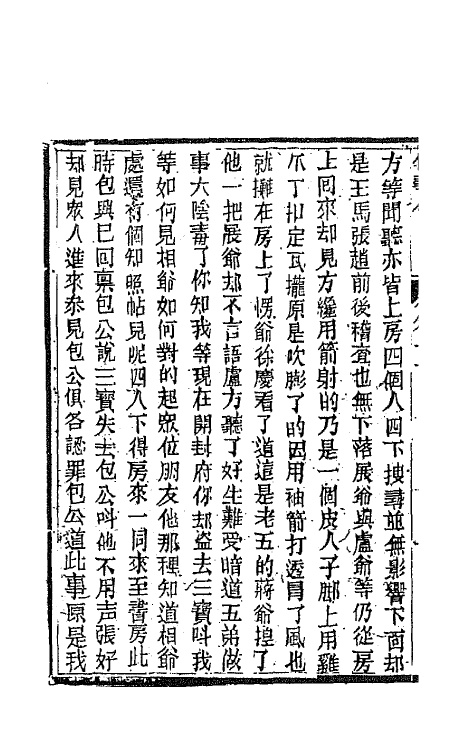 方等聞聽亦皆上房四個人四下搜尋並無影響下面却
是王馬張趙前後稽查也無下落展爺與盧爺等仍從房
上回來却見方纔用箭射的乃是一個皮人子脚上用雞
爪丁扣定瓦攏原是吹膨了的因用袖箭打透冒了風也
就攤在房上了愣爺徐慶看了道這是老五的蔣爺揑了
他一把展爺却不言語盧方聽了好生難受暗道五弟做
事太陰毒了你知我等現在開封府你却盗去三寶呌我
等如何見相爺如何對的起衆位朋友他那裡知道相爺
處還有個知照帖兒呢四人下得房來一同來至書房此
時包興已回禀包公說三寶失去包公呌他不用声張好
却見衆人進來叅見包公俱各認罪包公道此事原是我